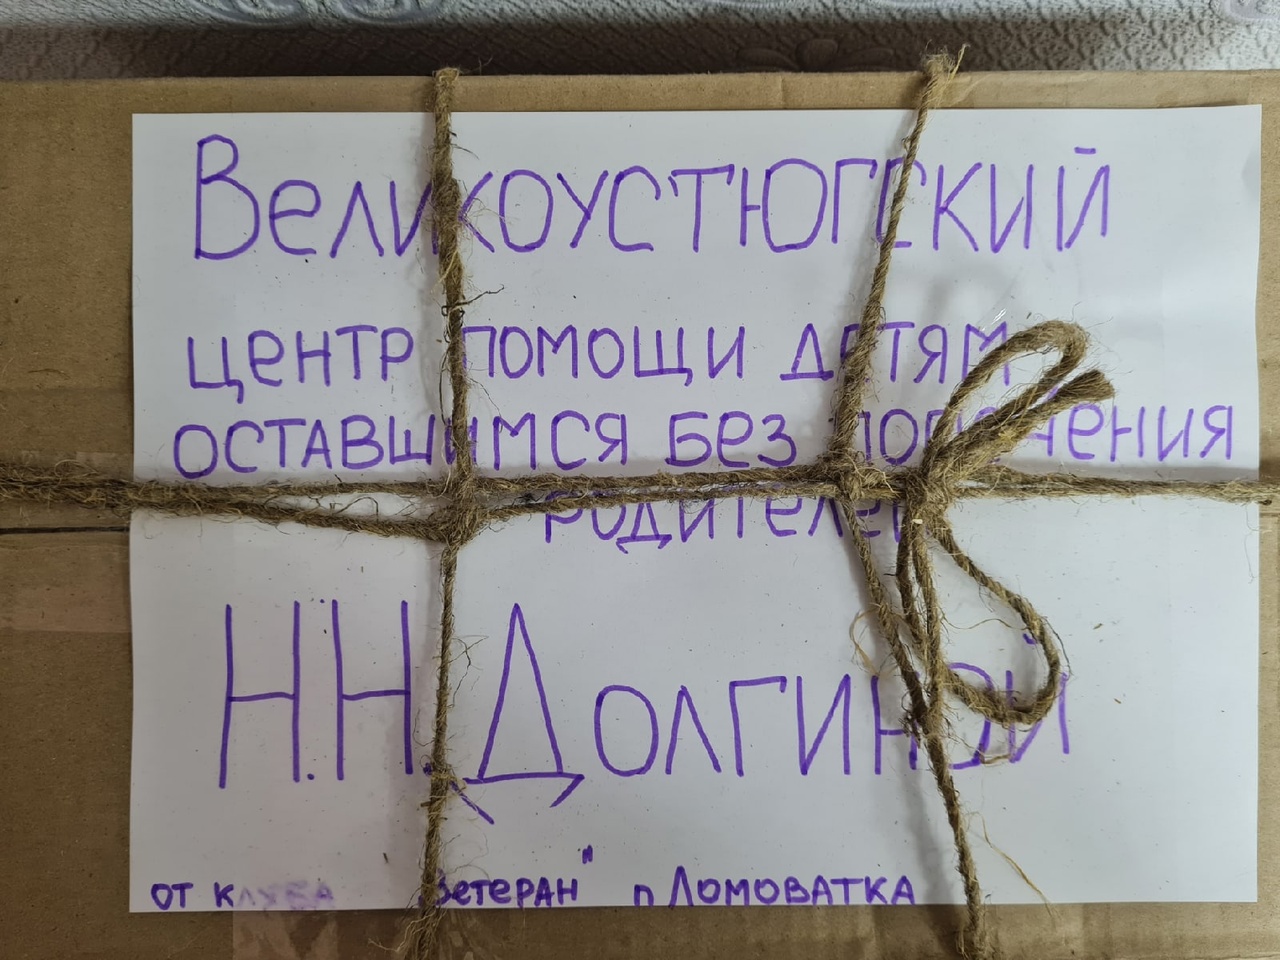 Великоустюгский
центр помощи детям
оставшимся без попечения
родителей
Н.Н. Долгиной
от клуба "Ветеран" п Ломоватка